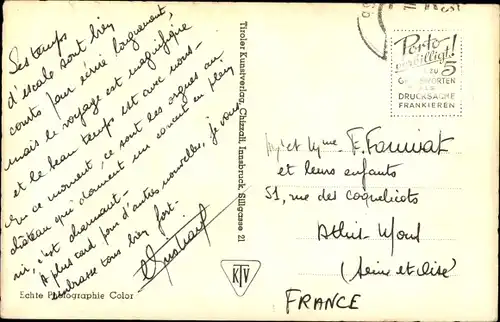 Les temps
d'escale sont bien
courts pour écrire longuement,
mais le voyage est magnifique
et le beau temps est avec nous.
En ce moment, ce sont les orgues du
château qui donnent un concert en plein
air, c'est charmant.
A plus tard pour d'autres nouvelles, je vous
embrasse tous bien fort.
Echte Photographie Color
Tiroler Kunstverlag, Chizzali, Innsbruck, Sillgasse 21
KTV
Porto
verbilligt!
ZU
5
WORTEN
ALS
DRUCKSACHE
FRANKIEREN
Mr et Mme F.
et leurs enfants
51, rue des coquelicots
Athis Mons
(Seine et Oise)
FRANCE